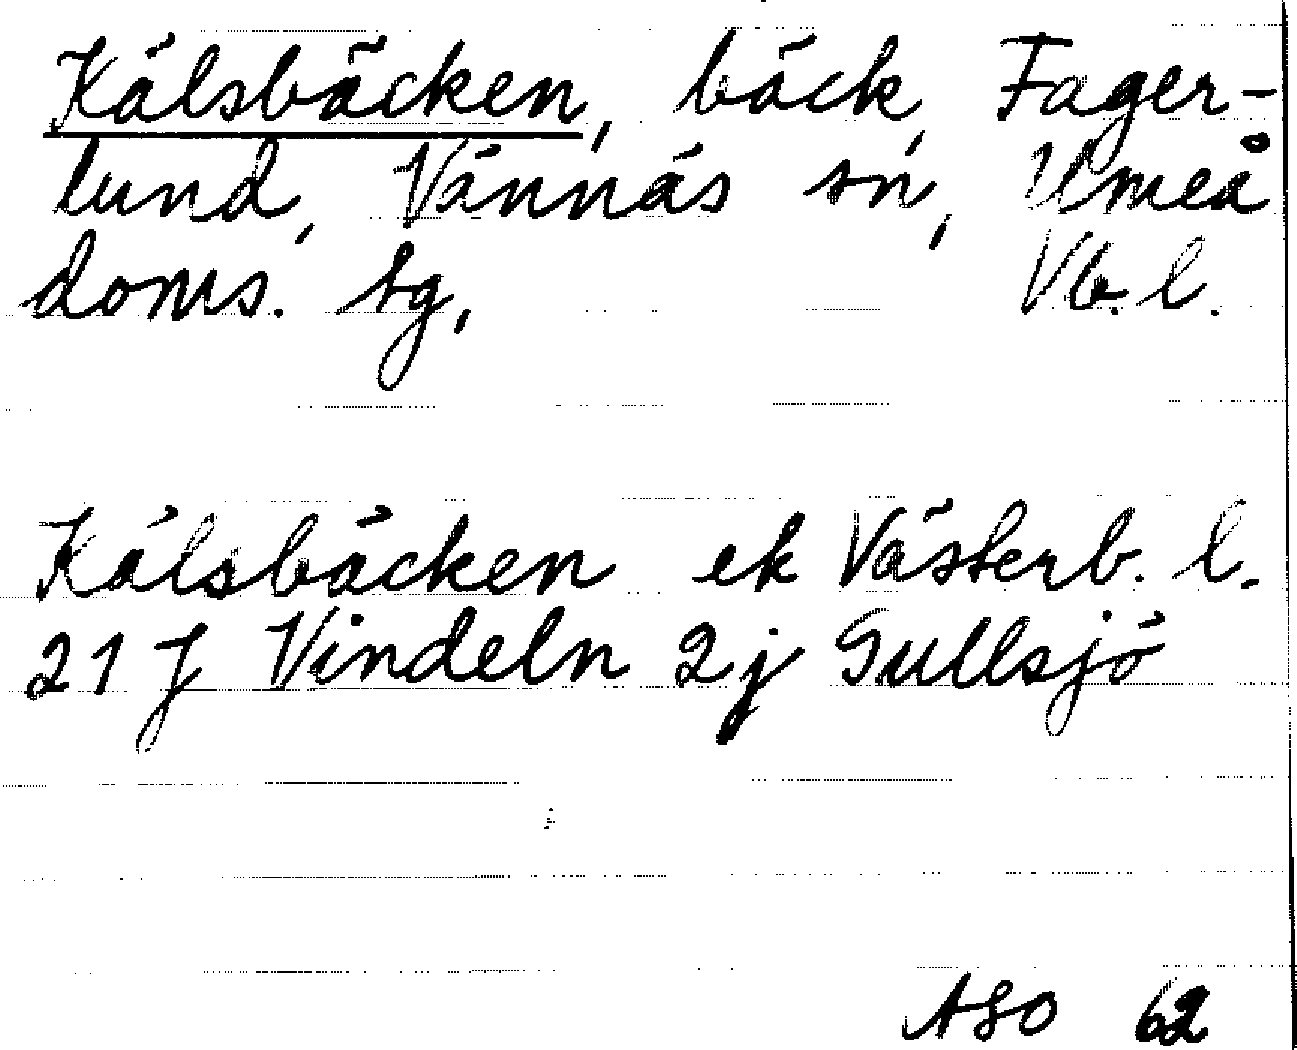 Kälsbäcken, bäck, Fager-
lund, Vännäs sn, Umeå
doms. tg, Vb. l.
Kälsbäcken ek Västerb. l.
21 J Vindeln 2j Gullsjö
ASO 62